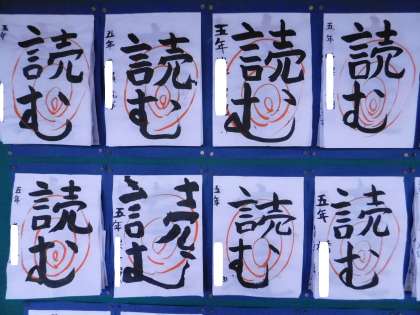 五年
読む
五年
読む
五年
読む
五年
読む
五年
読む
五年
読む
五年
読む
五年
読む